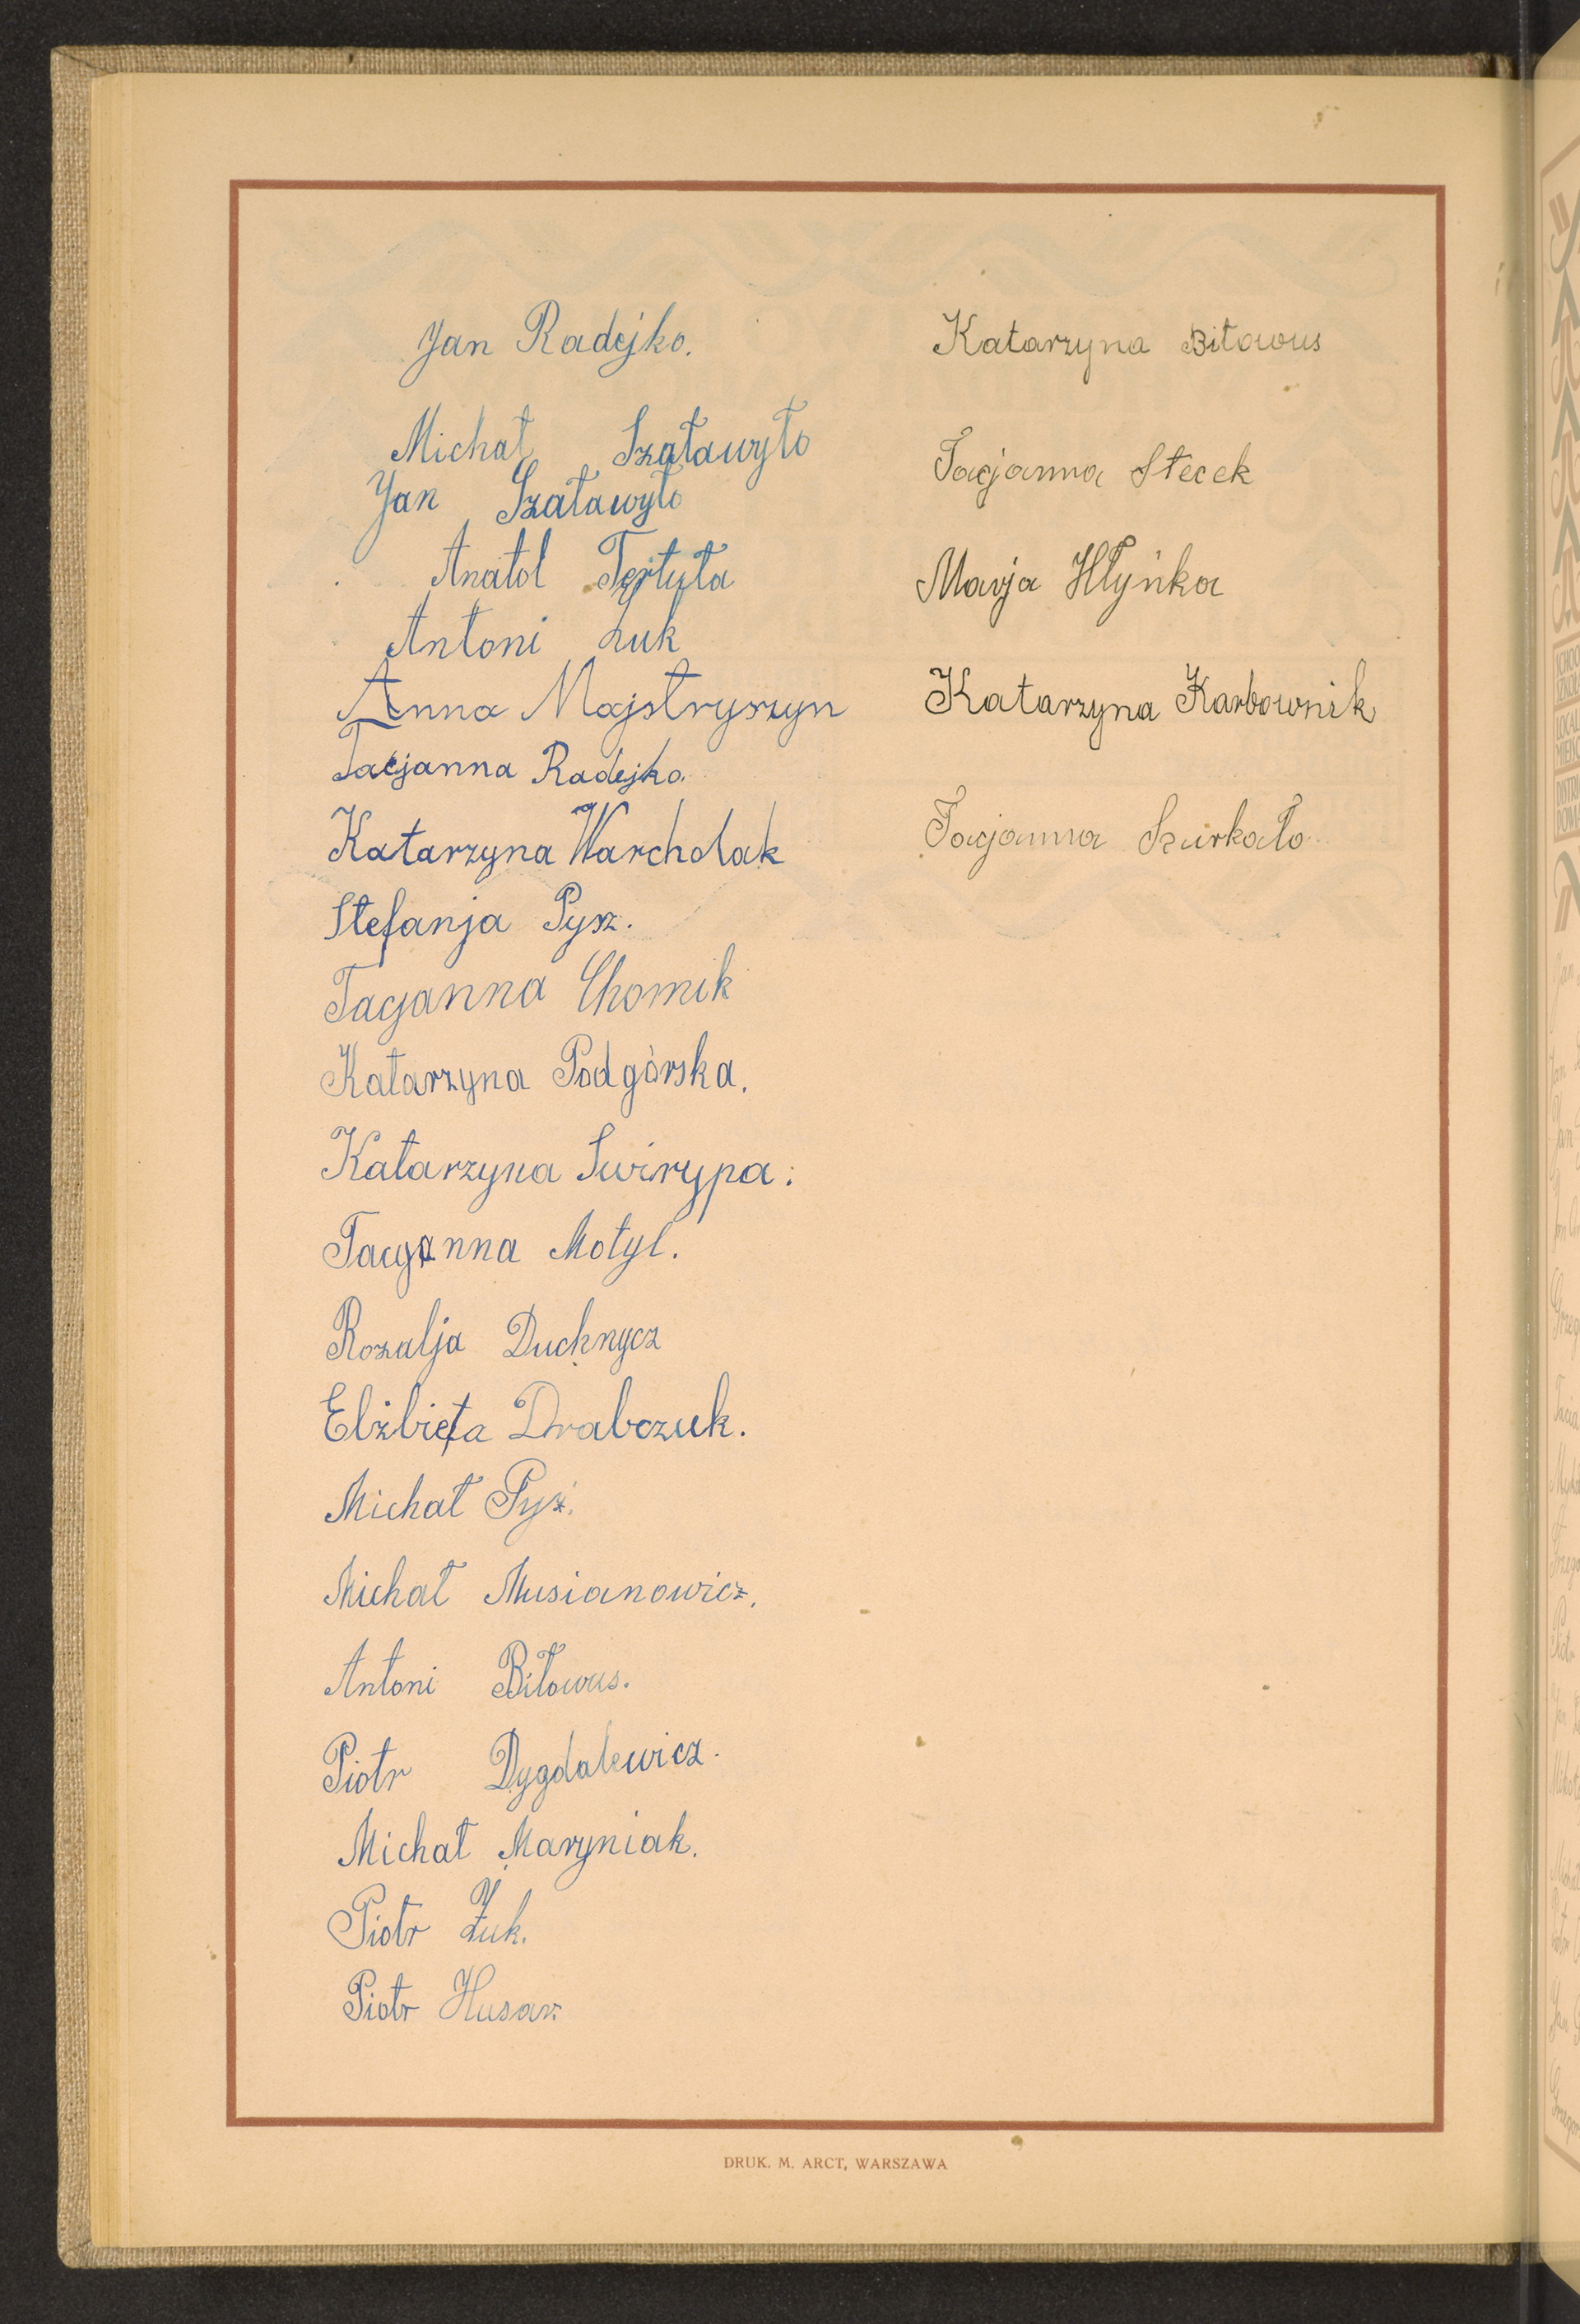 Jan Radejko.
Michał Szaławyło
Jan Szaławyło
Anatol Tertyła
Antoni Żuk
Anna Majstryszyn
Tacjanna Radejko.
Katarzyna Warcholak
Stefanja Pysz.
Tacjanna Chomik
Katarzyna Podgórska.
Katarzyna Swirypa.
Tacyanna Motyl.
Rozalja Duchnycz
Elżbieta Drabczuk.
Michał Pyż.
Michał Musianowicz.
Antoni Biłowus.
Piotr Dygdalewicz.
Michał Maryniak.
Piotr Żuk.
Piotr Husar.
Katarzyna Biłowus
Tacjanna Stecek
Marja Hłyńka
Katarzyna Karbownik
Tacjanna Szurkało
DRUK. M. ARCT, WARSZAWA